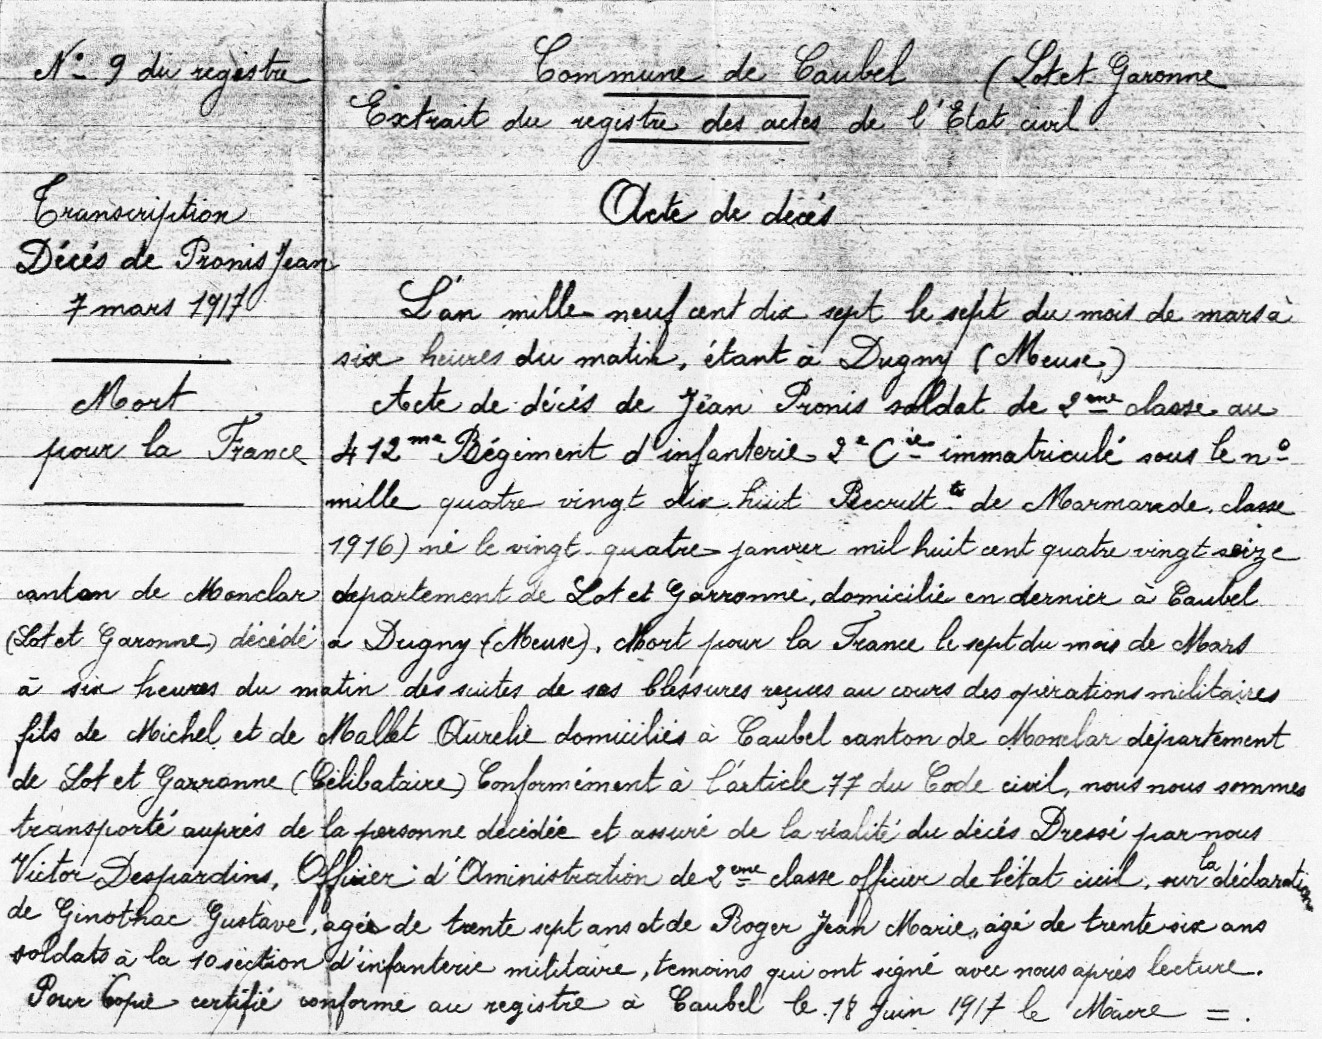 N° 9 du registre
Commune de Caubel (Lot et Garonne
Extrait du registre des actes de l'Etat civil.
Transcription
Décés de Pronis Jean
7 mars 1917
Mort
pour la France
Acte de decés
L'an mille neuf cent dix sept le sept du mois de mars à
six heures du matin, étant à Dugny (Meuse)
Acte de décés de Jean Pronis soldat de 2eme classe au
412me Régiment d'infanterie 2e Cie immatriculé sous le n°
mille quatre vingt dix huit Recrutt de Marmande. classe
1916) né le vingt quatre janvier mil huit cent quatre vingt seize
canton de Monclar departement de Lot et Garronne, domicilié en dernier à Caubel
(Lot et Garonne) décédé a Dugny (Meuse). Mort pour la France le sept du mois de Mars
à six heures du matin des suites de ses blessures reçues au cours des opérations militaires
fils de Michel et de Mallet Aurelie domiciliés à Caubel canton de Monclar département
de Lot et Garronne (Célibataire) Conformément à l'article 77 du Code civil, nous nous sommes
transporté auprés de la personne décédée et assuré de la réalité du décés Dressé par nous
Victor Desjardins, Officier d'Aministration de 2eme classe officier de l'état civil, sur la déclaration
de Ginothac Gustave, agée de trente sept ans et de Roger Jean Marie, âgé de trente six ans
soldats à la 10 section d'infanterie militaire, temoins qui ont signé avec nous aprés lecture.
Pour Copie certifié conforme au registre à Caubel le 18 Juin 1917 le Maire = .